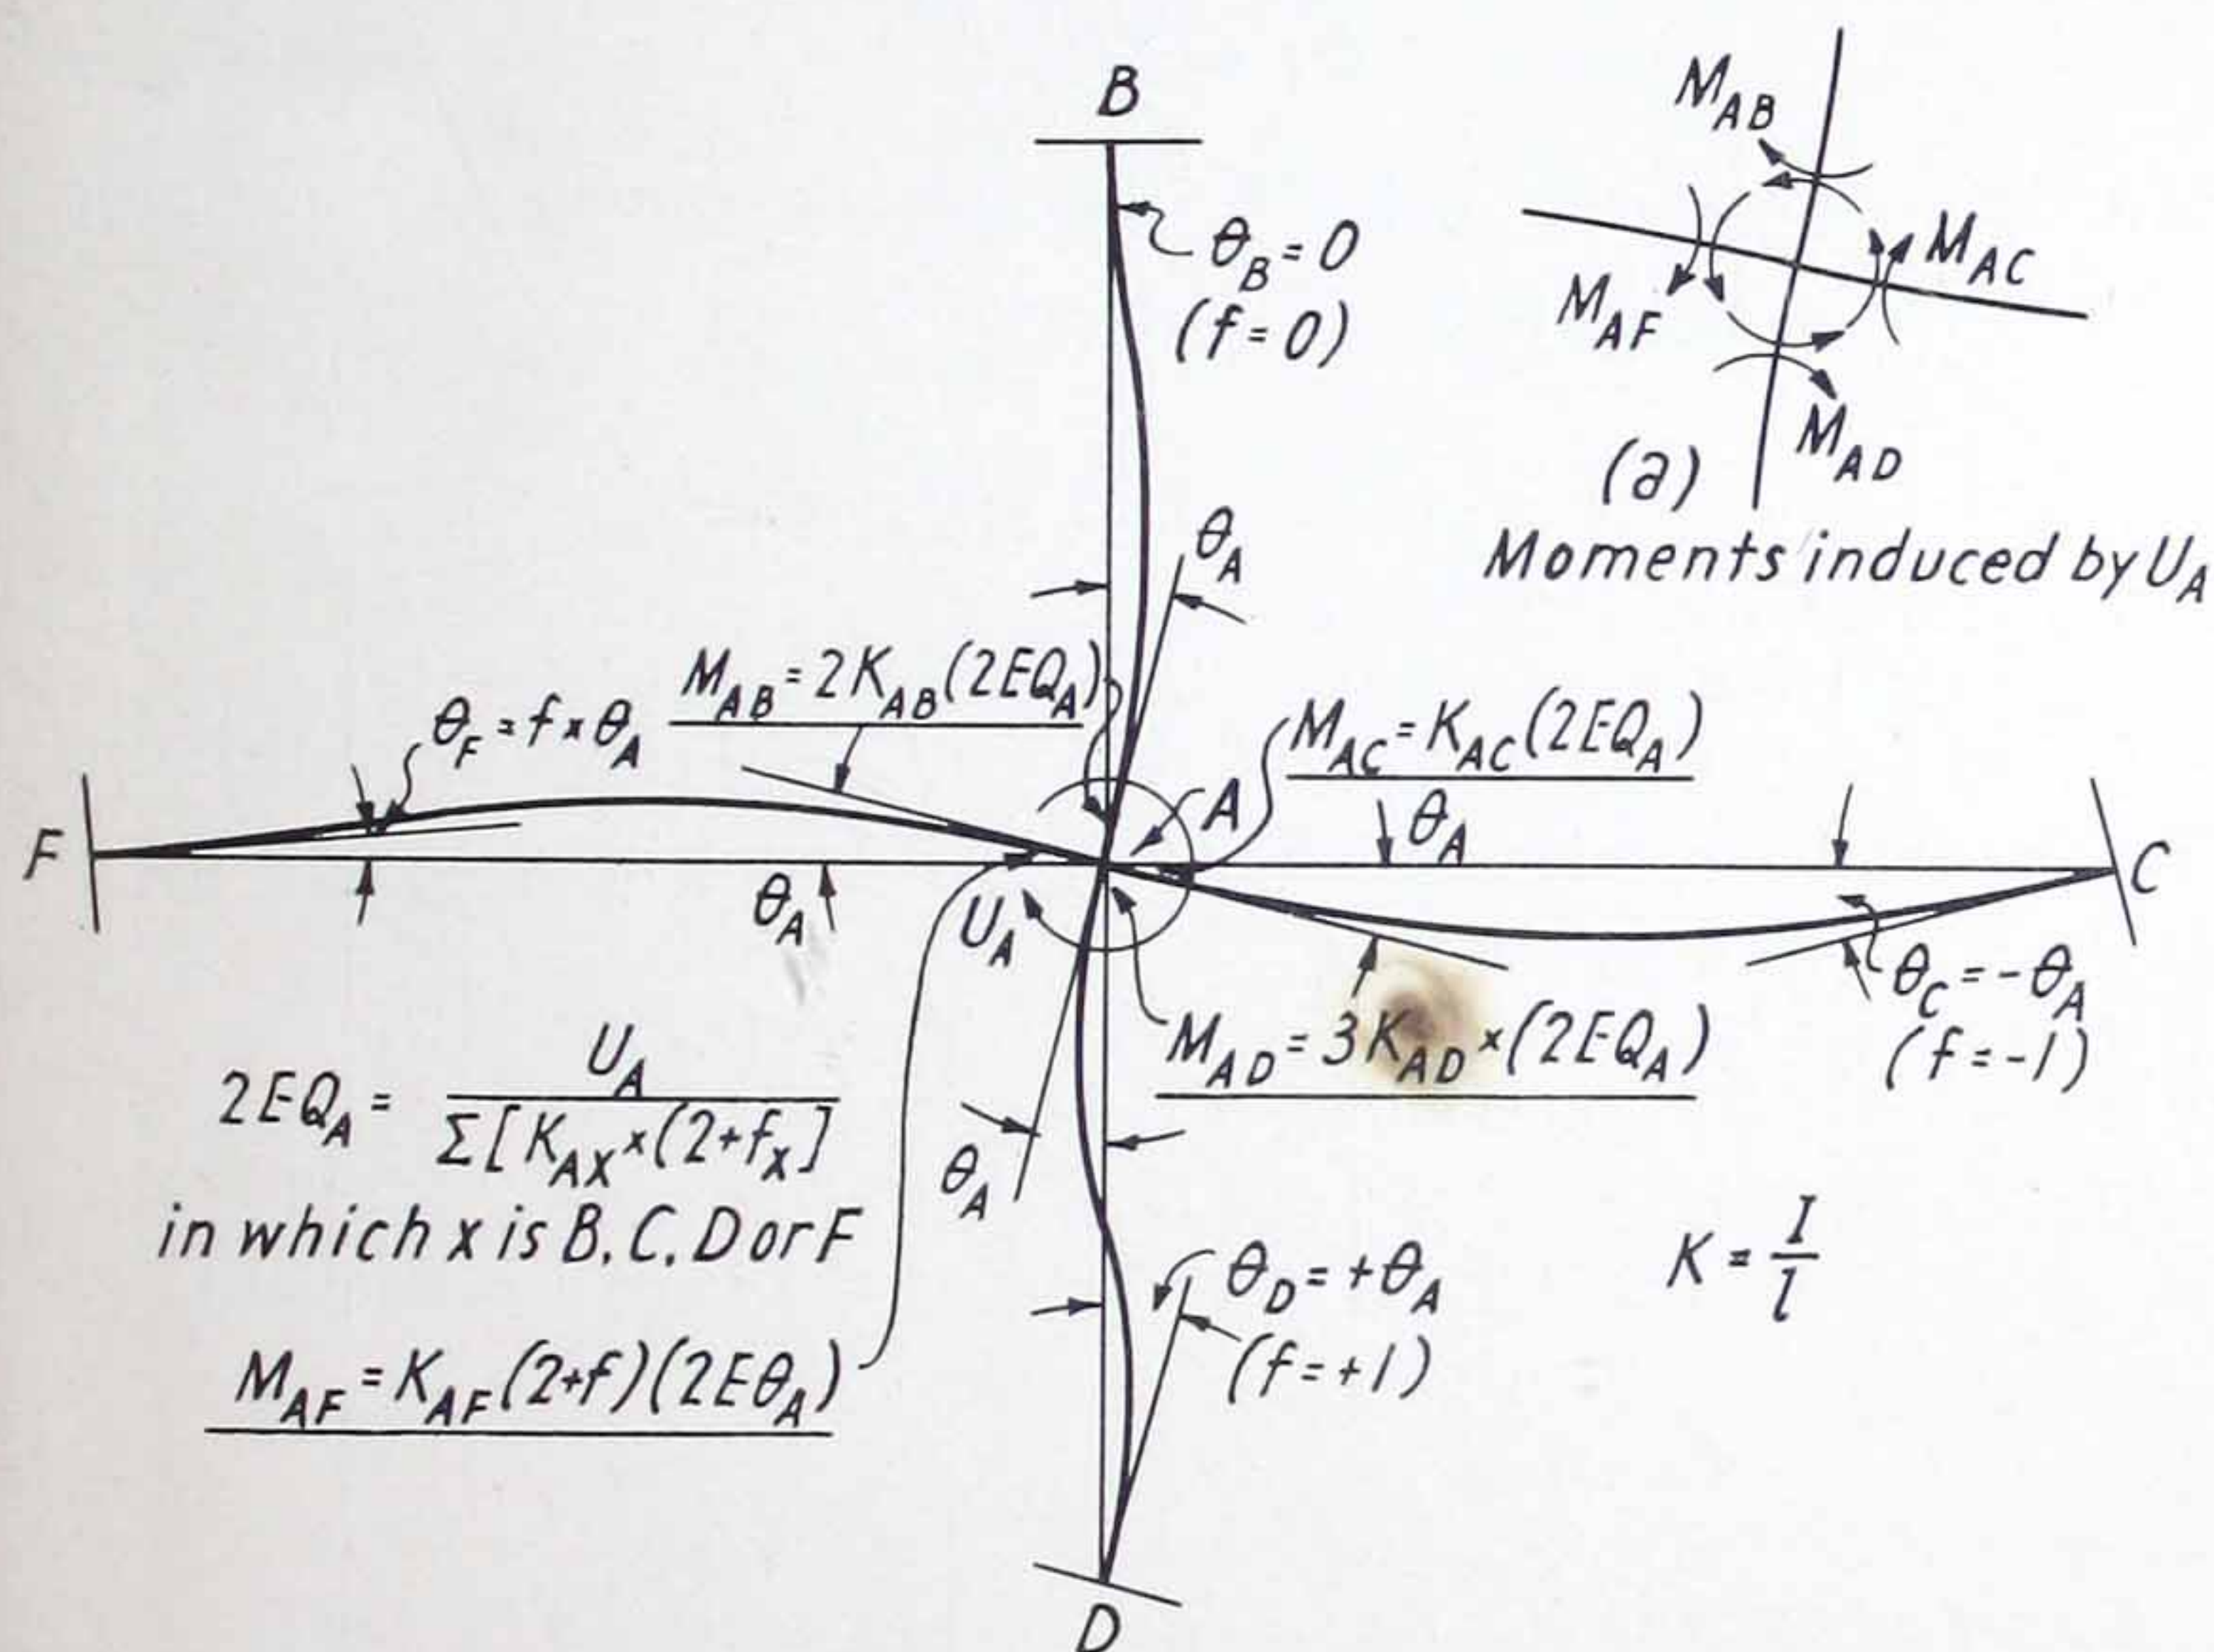 B
θ_B = 0
(f = 0)
M_AB
M_AC
M_AF
M_AD
(a)
Moments induced by U_A
θ_A
M_AB = 2K_AB (2EQ_A)
θ_F = f × θ_A
M_AC = K_AC (2EQ_A)
A
θ_A
F
C
θ_A
U_A
θ_C = -θ_A
(f = -1)
M_AD = 3K_AD × (2EQ_A)
2EQ_A = U_A / Σ[K_AX × (2+f_X]
in which x is B, C, D or F
θ_A
θ_D = +θ_A
(f = +1)
K = I / l
M_AF = K_AF (2+f)(2Eθ_A)
D